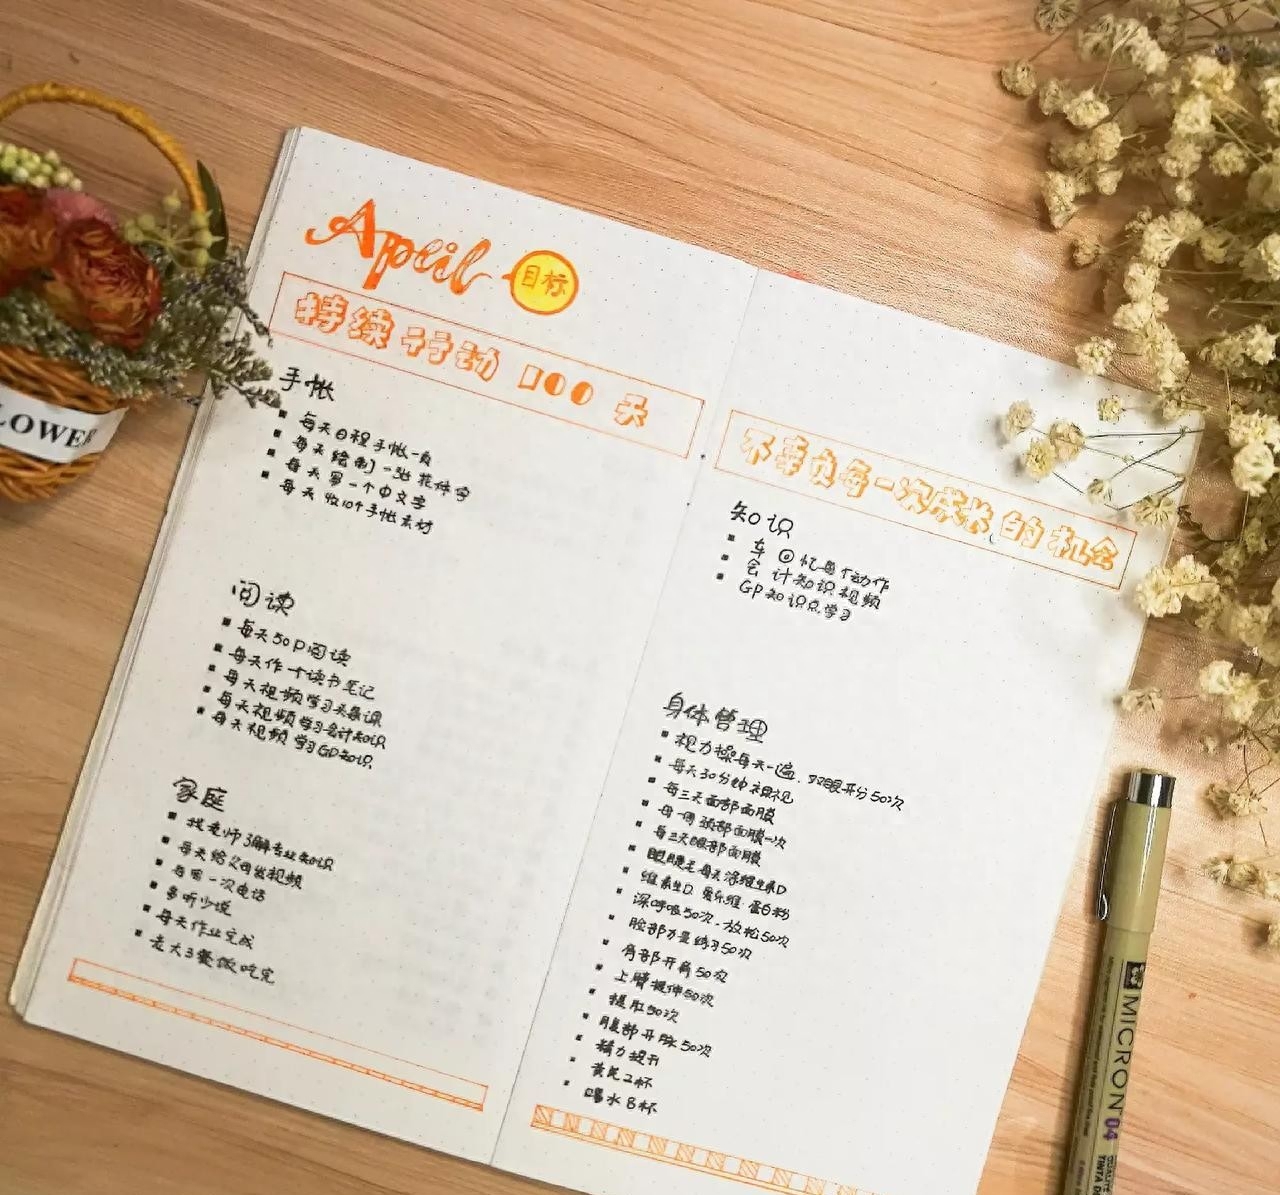 April 目标
持续行动 100 天
手帐
每天日程手帐一页
每天绘制一张花体字
每天写一个中文字
每天收10个手帐素材
阅读
每天50P阅读
每天作一个读书笔记
每天视频学习头条课
每天视频学习会计知识
每天视频学习GP知识
家庭
找老师了解专业知识
每天给父母发视频
每周一次电话
多听少说
每天作业完成
老大3餐做吃完
不辜负每一次成长的机会
知识
车 回忆每个动作
会计知识视频
GP知识点学习
身体管理
视力操每天一遍. 双眼开分50次
每天30分钟
每三天面部面膜
每一周颈部面膜一次
每三天眼部面膜
眼睫毛每天涂维生素D
维素生D. 爱乐维. 蛋白粉
深呼吸50次. 放松50次
脸部力量练习50次
肩部开肩50次
上臂提伸50次
提肛50次
腹部开脉50次
精力提升
黄芪2杯
喝水8杯
LOWER
MICRON 04